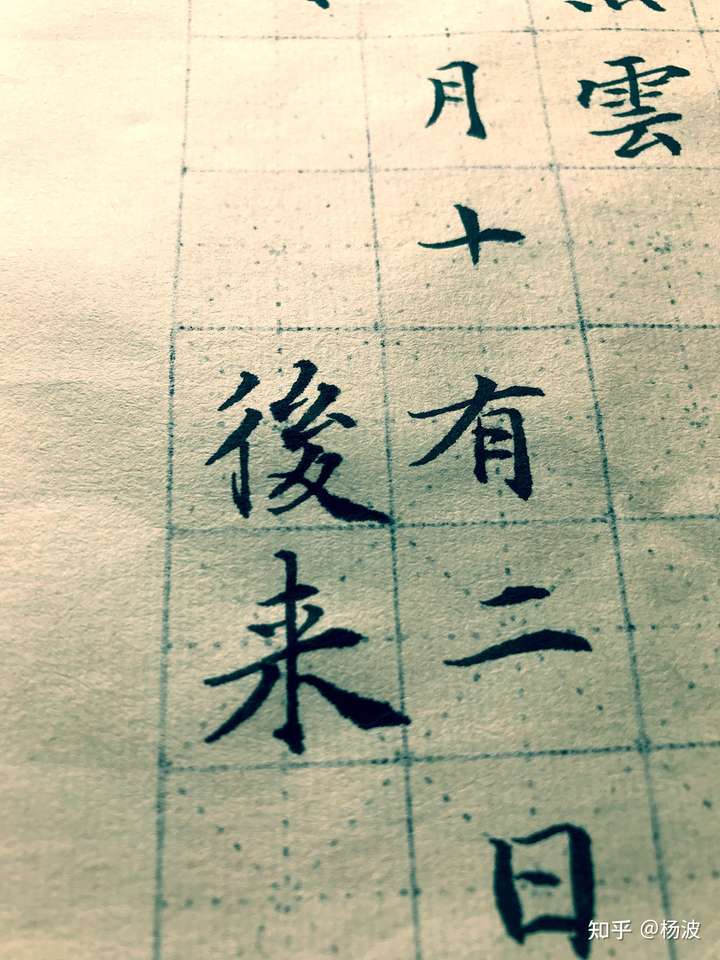 雲
月十有二日
後来
知乎 @杨波